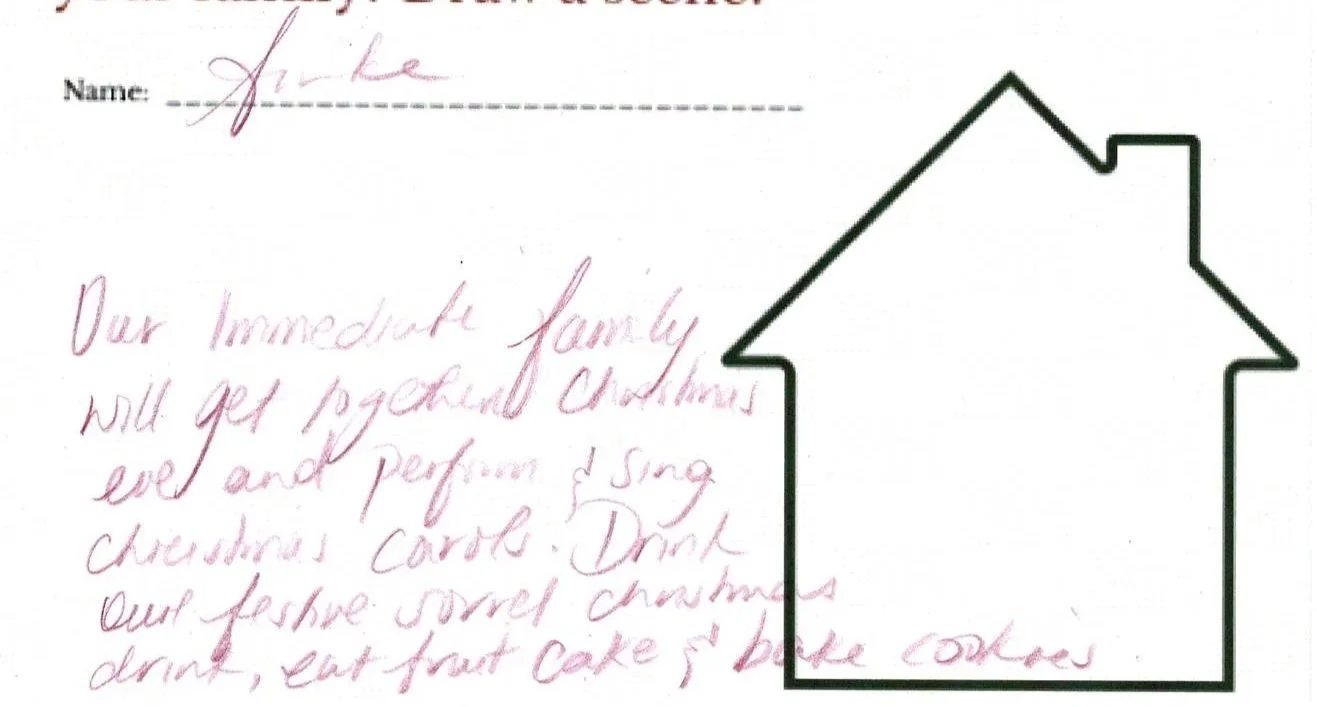 your family. Draw a scene.
Name:
Our Immediate family
will get together Christmas
eve and perform & sing
christmas carols. Drink
our festive sorrel christmas
drink, eat fruit cake & bake cookies.